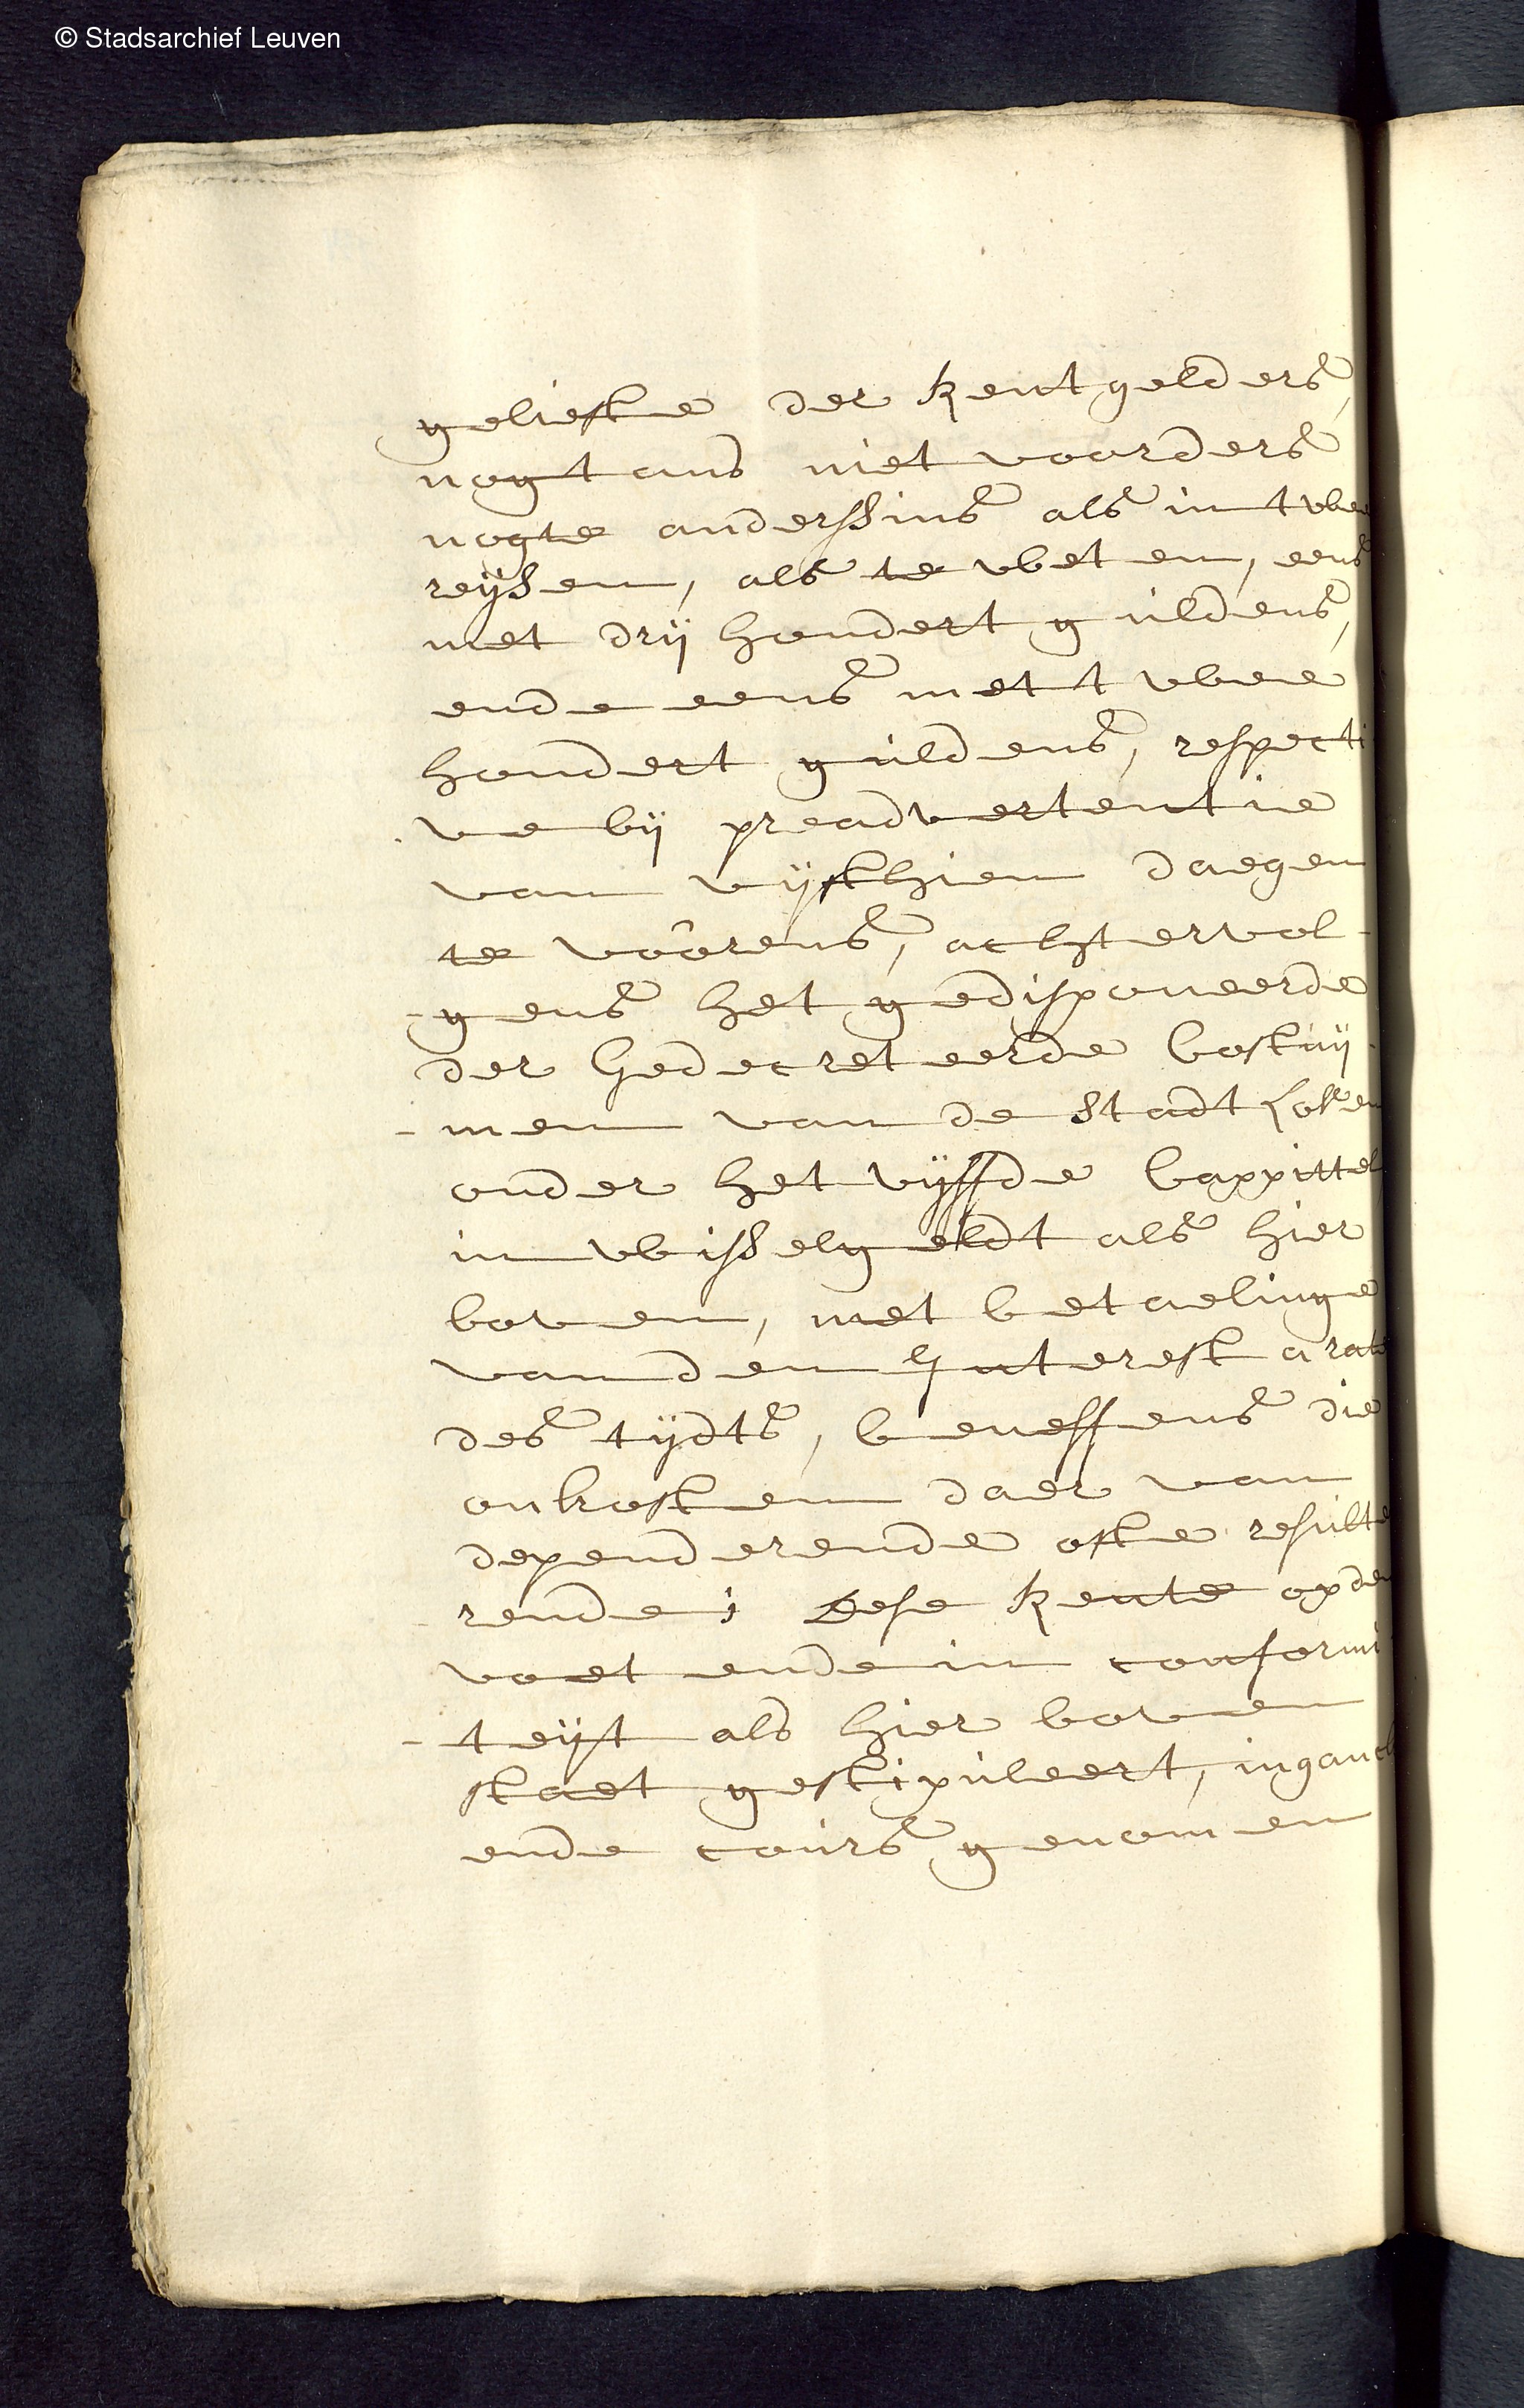 © Stadsarchief Leuven
geliefte der Rentgelders,
nogtans niet voorders
nogte anderssins als in twee
reijsen, als te weten, eens
met drij hondert guldens,
ende eens met twee
hondert guldens, respecti
ve bij preadvertentie
van vijfthien daegen
te voorens, achtervol-
-gens het gedisponeerde
der Gedecreteerde Costuij-
-men van de stadt Loven
onder het vijffde Cappittel
in wisselgeldt als hier
boven, met betaelinge
van den Interest a rato
des tijdts, beneffens die
onkosten daer van
dependerende ofte resulte
rende; dese Rente op den
voet ende in conformi
-teijt als hier boven
staet gestipuleert, inganck
ende cours genomen